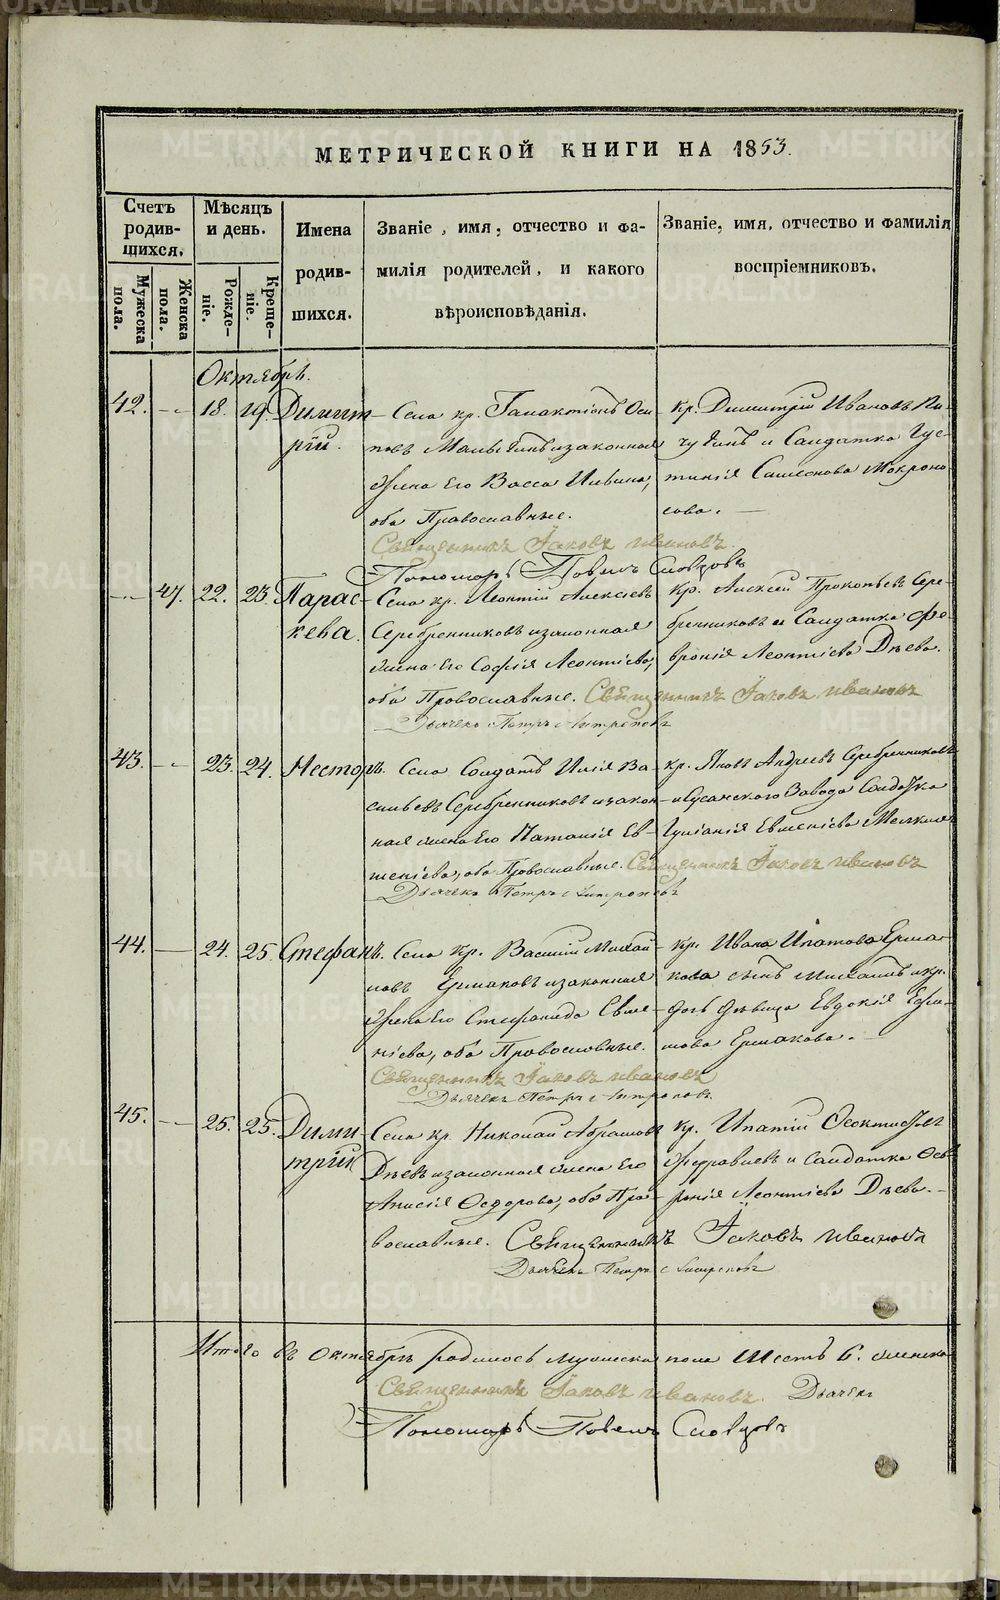 МЕТРИЧЕСКОЙ КНИГИ НА 1853.
Счетъ родив-шихся.
Мужеска пола.
Женска пола.
Мѣсяцъ и день.
Рожде-ніе.
Креще-ніе.
Имена
родив-
шихся.
Званіе, имя, отчество и фа-
милія родителей, и какого
вѣроисповѣданія.
Званіе, имя, отчество и фамилія
воспріемниковъ.
Октябрь.
42. 18. 19. Димит-
рій.
Села кр. Галактіонъ Оси-
повъ и законная
жена его Васса Ильина,
оба Православные.
Священникъ Іаковъ Ивановъ.
Пономарь Павелъ Словцовъ
кр. Димитрій Ивановъ Пи-
чугинъ и Солдатка Іус-
тинія Самсонова Мокроно-
сова.
47. 22. 23. Парас-
кева.
Села кр. Леонтій Алексѣевъ
Серебренниковъ и законная
жена его Софія Леонтіева,
оба Православные. Священникъ Іаковъ Ивановъ
Дьячекъ Петръ
Кр. Алексѣй Прокопьевъ Сере-
бренниковъ и Солдатка Фе-
вронія Леонтіева Дѣева.
43. 23. 24. Несторъ.
Села Солдатъ Илія Ва-
сильевъ Серебренниковъ и закон-
ная жена его Наталія Ев-
геніева, оба Православные. Священникъ Іаковъ Ивановъ
Дьячекъ Петръ
кр. Яковъ Андреевъ Серебренниковъ
и Сусанскаго Завода Солдатка
Іуліанія Евгеніева
44. 24. 25. Стефанъ.
Села Кр. Василій Михай-
ловъ Ермаковъ и законная
жена его Стефанида Евге-
ніева, оба Православные.
Священникъ Іаковъ Ивановъ
Дьячекъ Петръ
Кр. Ивана Ипатова Ерма-
кова сынъ Михаилъ и кр.
дочь дѣвица Евдокія Ефи-
мова Ермакова.
45. 25. 25. Дими-
трій
Села кр. Николай Абрамовъ
Дѣевъ и законная жена его
Анисія Ѳедорова, оба Пра-
вославные. Священникъ Іаковъ Ивановъ
Дьячекъ Петръ
кр. Ипатій Ѳеоктистовъ
и солдатка Фев-
ронія Леонтіева Дѣева.
Итого въ Октябрѣ родилось мужеска пола Шесть 6. женска
Священникъ Іаковъ Ивановъ. Дьячекъ
Пономарь Павелъ Словцовъ
METRIKI.GASO-URAL.RU